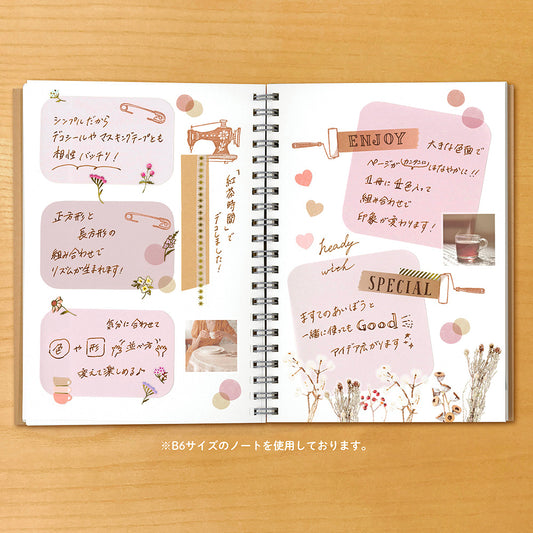 シンプルだから
デコシールや マスキングテープとも
相性 バッチリ!
正方形と
長方形の
組み合わせで
リズムが生まれます!
気分に合わせて
色 や 形 並べ方
変えて楽しめる♪
「紅茶時間」で
デコしました!
ENJOY
大きな色面で
ページが カンタンに はなやかに!!
1冊に 全色入って
組み合わせで
印象が変わります!
heady
wish
SPECIAL
ますてのあいぼうと
一緒に使っても Good
アイデア広がります
※B6サイズのノートを使用しております。